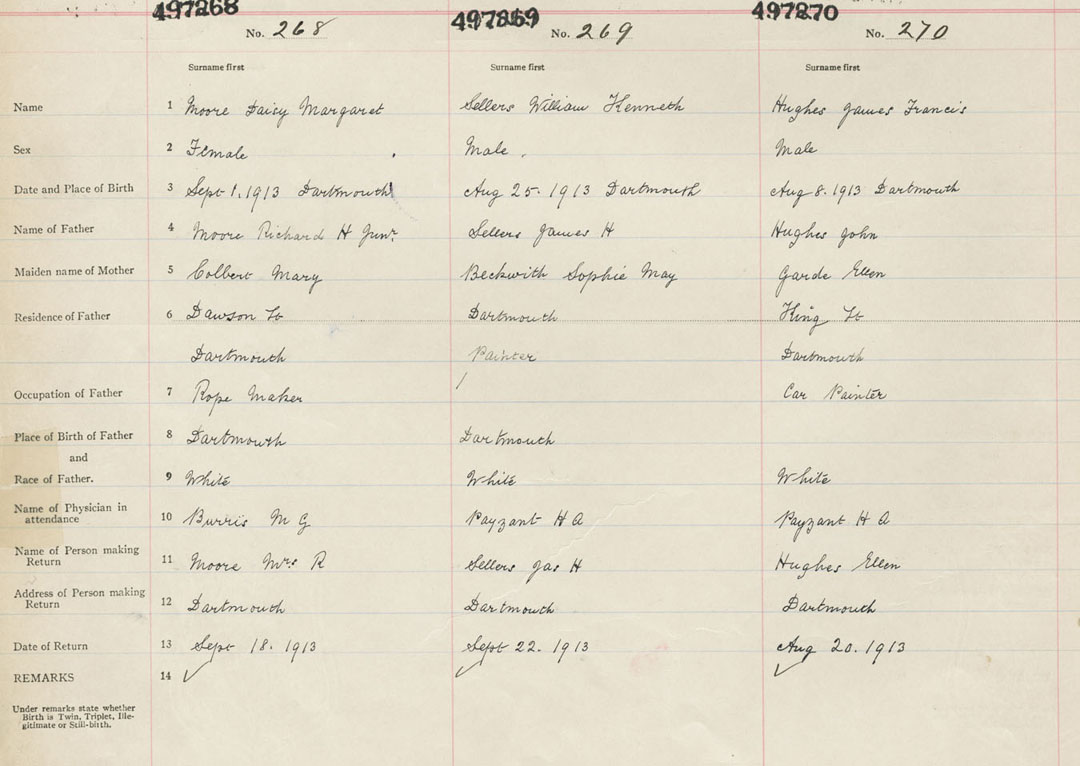 497268 497269 497270
No. 268 No. 269 No. 270
Surname first Surname first Surname first
Name 1 Moore Daisy Margaret Sellers William Kenneth Hughes James Francis
Sex 2 Female Male Male
Date and Place of Birth 3 Sept 1. 1913 Dartmouth Aug 25. 1913 Dartmouth Aug 8. 1913 Dartmouth
Name of Father 4 Moore Richard H Junr Sellers James H Hughes John
Maiden name of Mother 5 Colbert Mary Beckwith Sophie May Garde Ellen
Residence of Father 6 Dawson St Dartmouth King St
Dartmouth Painter Dartmouth
Occupation of Father 7 Rope Maker / Car Painter
Place of Birth of Father 8 Dartmouth Dartmouth
and
Race of Father. 9 White White White
Name of Physician in
attendance 10 Burris M G Payzant H A Payzant H A
Name of Person making
Return 11 Moore Mrs R Sellers Jas H Hughes Ellen
Address of Person making
Return 12 Dartmouth Dartmouth Dartmouth
Date of Return 13 Sept 18. 1913 Sept 22. 1913 Aug 20. 1913
REMARKS 14 ✓ ✓ ✓
Under remarks state whether
Birth is Twin, Triplet, Ille-
gitimate or Still-birth.